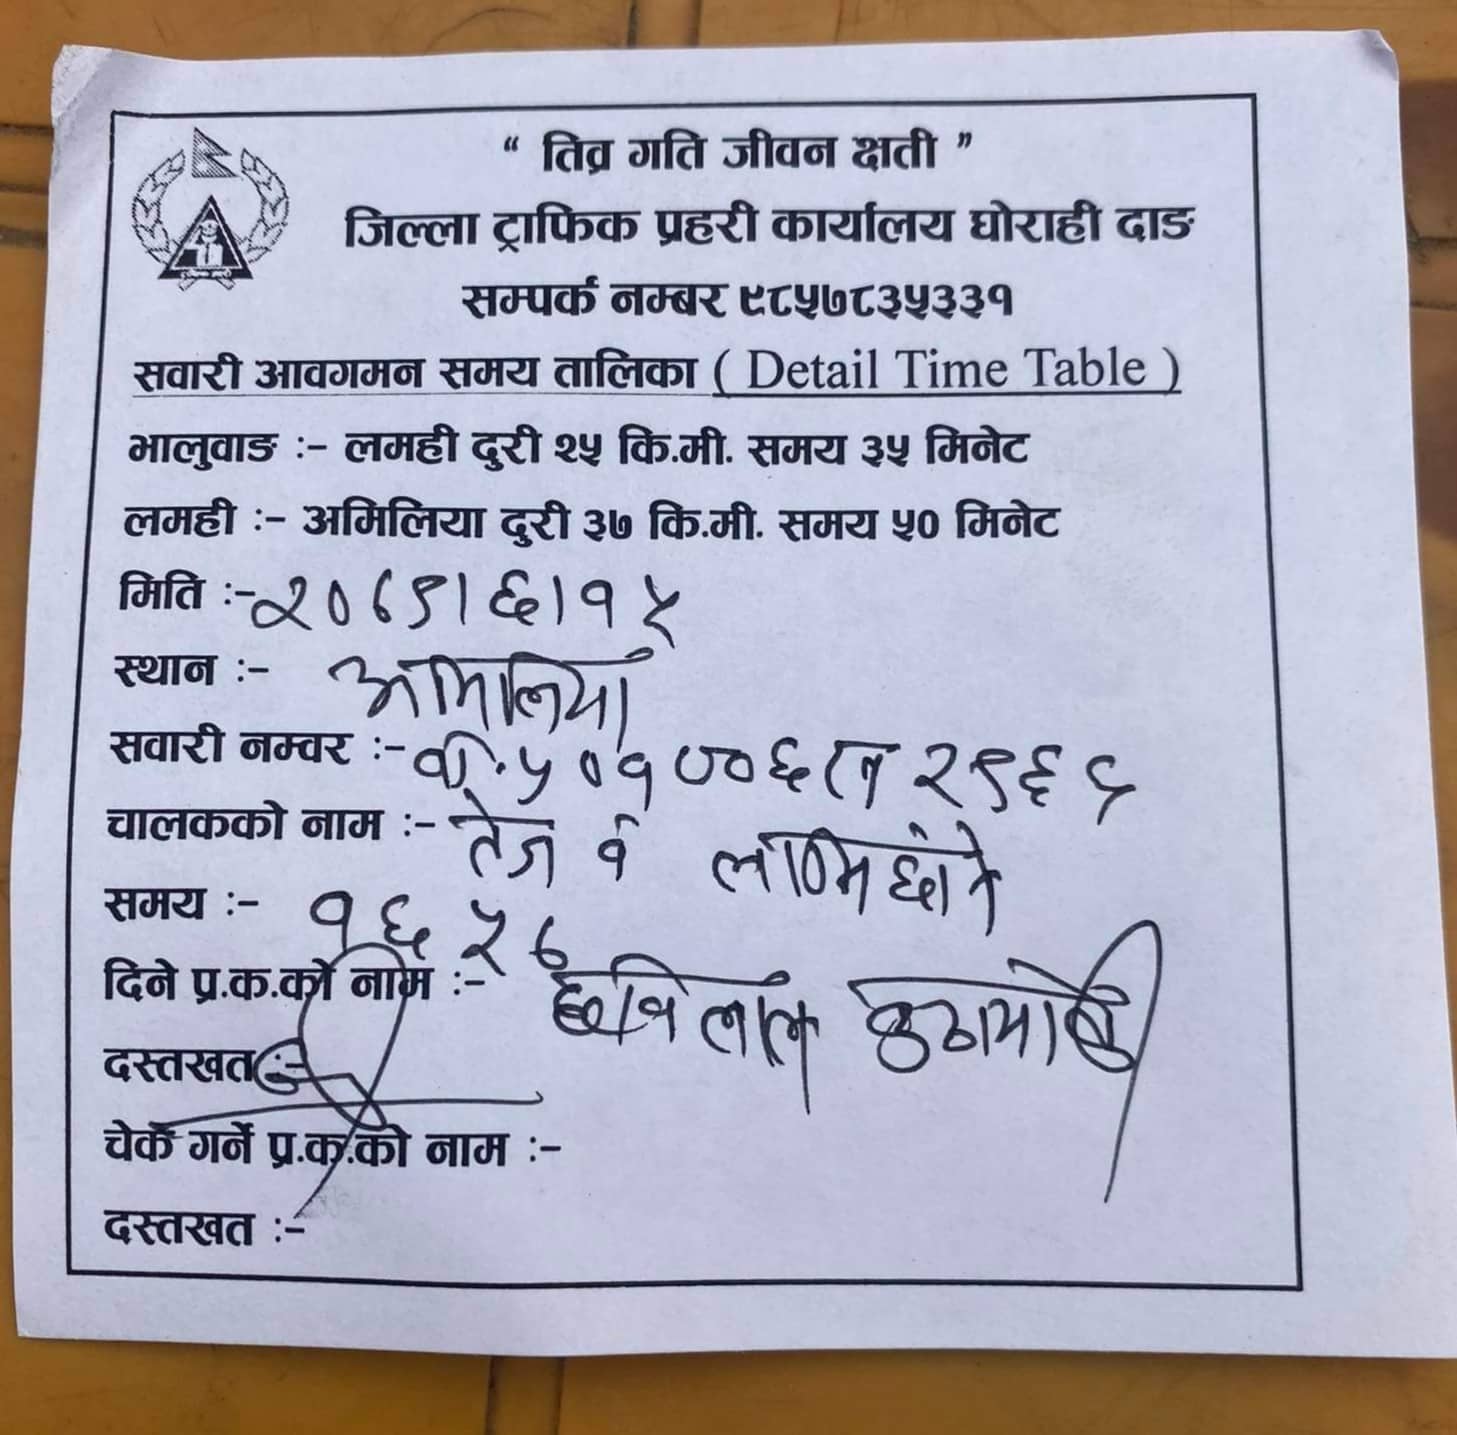 “ तिव्र गति जीवन क्षती ”
जिल्ला ट्राफिक प्रहरी कार्यालय घोराही दाङ
सम्पर्क नम्बर ९८५७८३५३३१
सवारी आवगमन समय तालिका ( Detail Time Table )
भालुवाङ :- लमही दुरी २५ कि.मी. समय ३५ मिनेट
लमही :- अमिलिया दुरी ३७ कि.मी. समय ५० मिनेट
मिति :- २०८९।६।१५
स्थान :- अमिलिया
सवारी नम्वर :-
चालकको नाम :- तेज व
समय :- १६ ५८
दिने प्र.क.को नाम :- छविलाल
दस्तखत :-
चेक गर्ने प्र.क.को नाम :-
दस्तखत :-